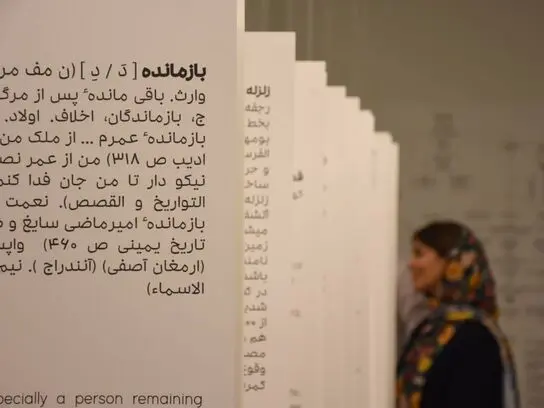 بازمانده [ دَ / دِ ] (ن مف مر
وارث. باقی مانده ٔ پس از مرگ
ج، بازماندگان، اخلاف. اولاد.
بازمانده ٔ عمرم ... از ملک من
ادیب ص ۳۱۸) من از عمر نص
نیکو دار تا من جان فدا کنم
التواریخ و القصص). نعمت
بازمانده ٔ امیرماضی سایغ و
تاریخ یمینی ص ۴۶۰) واپس
(ارمغان آصفی) (آنندراج ). نیم
الاسماء)
pecially a person remaining
زلزله
رجفه
بخط
بومه
الفرس
و جر
ساخ
زلزله
آتشف
میش
زمین
نامند
باشد
در ک
شدی
از ۰۰
هم
مصد
وقوع
کمر